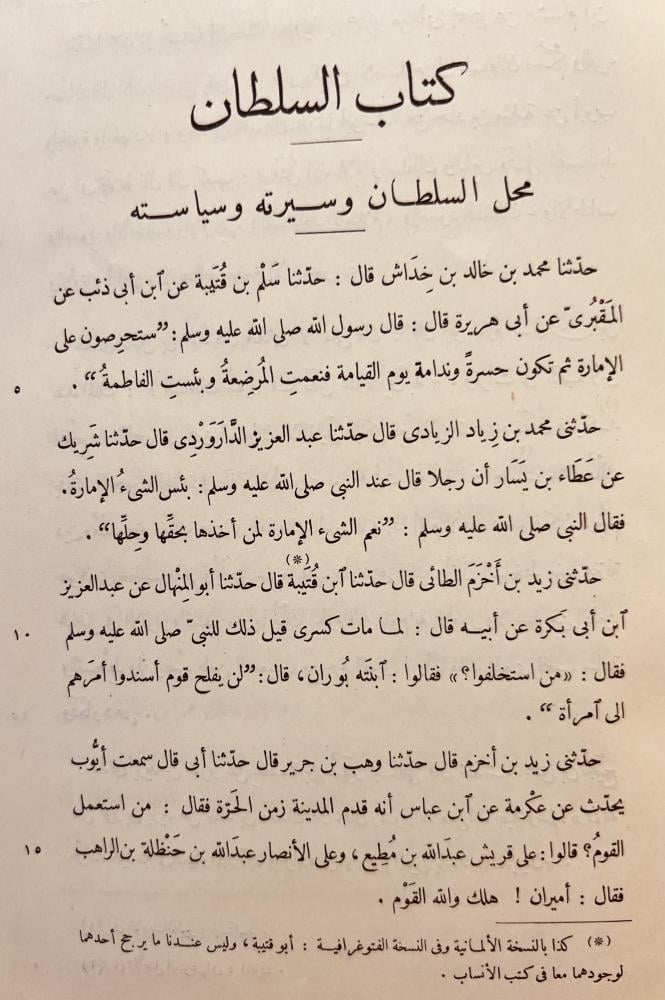 كتاب السلطان
محل السلطان وسيرته وسياسته
حدّثنا محمد بن خالد بن خِدَاش قال : حدّثنا سَلْم بن قُتَيبة عن ٱبن أبى ذئب عن
المَقْبُرىّ عن أبى هريرة قال : قال رسول الله صلى الله عليه وسلم : ”ستحرِصون على
الإمارة ثم تكون حسرةً وندامة يوم القيامة فنعمتِ المُرضِعةُ وبئستِ الفاطمةُ“ . ٥
حدّثنى محمد بن زِياد الزيادى قال حدّثنا عبد العزيز الدَّارَوَرْدِى قال حدّثنا شَرِيك
عن عَطَاء بن يَسَار أن رجلا قال عند النبى صلى الله عليه وسلم : بئس الشىءُ الإمارةُ.
فقال النبى صلى الله عليه وسلم : ”نعم الشىء الإمارة لمن أخذها بحقِّها وحِلِّها“ .
حدّثنى زيد بن أَخْزَمَ الطائى قال حدّثنا ٱبن قُتَيبة (*) قال حدّثنا أبو المِنْهال عن عبد العزيز
ٱبن أبى بَكرة عن أبيه قال : لما مات كسرى قيل ذلك للنبىّ صلى الله عليه وسلم ١٠
فقال : «من استخلفوا؟» فقالوا : ٱبنَته بُوران، قال : ”لن يفلح قوم أسندوا أمرَهم
الى ٱمرأة“ .
حدّثنى زيد بن أخزم قال حدّثنا وهب بن جرير قال حدّثنا أبى قال سمعت أيُّوب
يحدّث عن عكْرمة عن ٱبن عباس أنه قدم المدينة زمن الحَرّة فقال : من استعمل
القومُ؟ قالوا : على قريش عبدَالله بن مُطِيع، وعلى الأنصار عبدَالله بن حَنْظلة بن الراهب ١٥
فقال : أميران ! هلك والله القَوْم .
(*) كذا بالنسخة الألمانية وفى النسخة الفتوغرافية : أبو قتيبة، وليس عندنا ما يرجح أحدهما
لوجودهما معا فى كتب الأنساب .